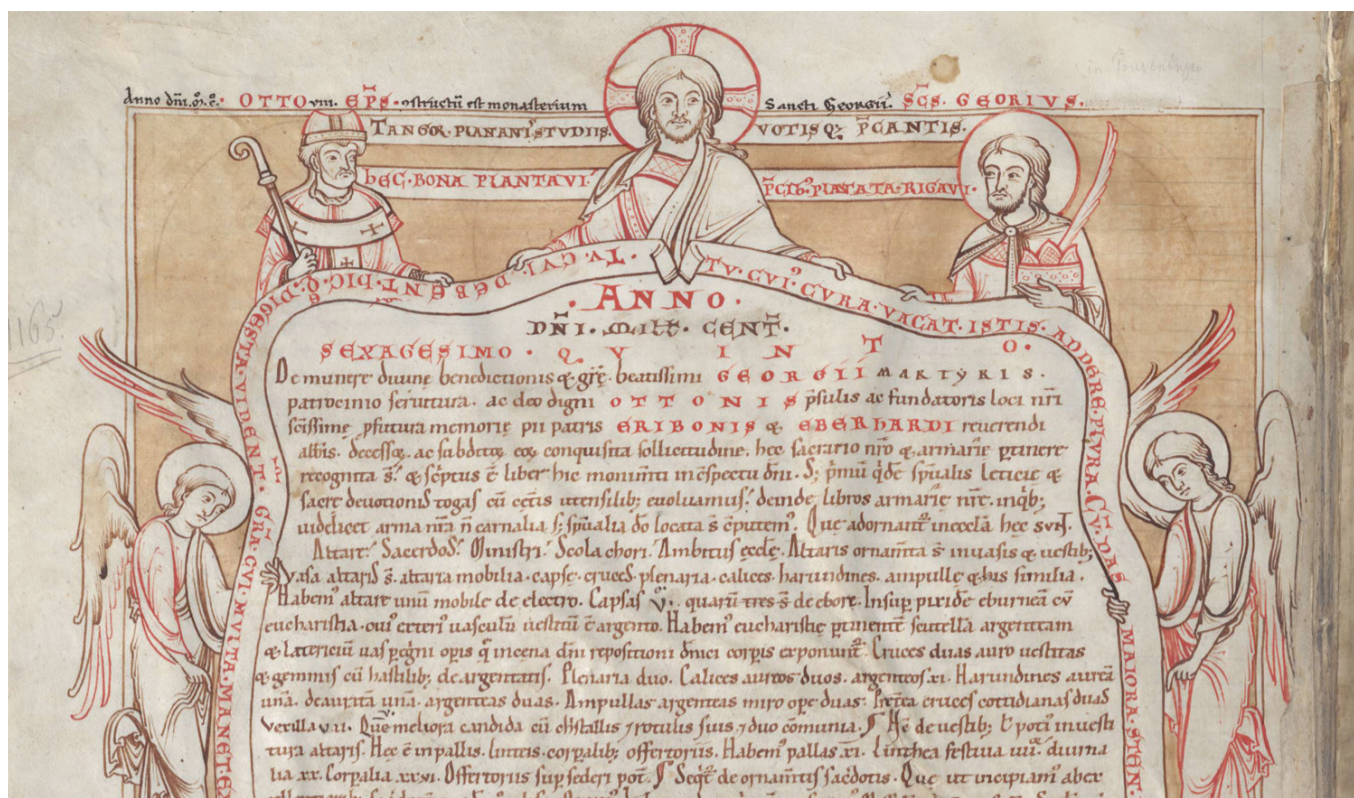 Anno dñi. OTTO VIII. EP̅S. ꝯstructū est monasterium Sancti Georgii. S̅CS. GEORIVS.
TANGOR. STVDIIS. VOTIS Qꝫ P̅CANTIS.
HEC. BONA PLANTAVI. RIGAVI.
TV. CVI. DEBENT. DIGESTA. VIDENT. GRA. CVI. MVLTA. MANENT.
TV. CVI᾽ CVRA. VACAT. ISTIS. ADDERE. PLVRA. MAIORA.
· ANNO ·
DÑI. MILL. CENT̅.
SEXAGESIMO · QVINTO ·
De munere diuine benedictionis & grē. beatissimi GEORGII MARTYRIS.
patrocinio seruitura. ac deo digni OTTONIS p̄sulis ac fundatoris loci nr̄i
scīssimę ꝓfutura memorię pii patris ERIBONIS & EBERHARDI reuerendi
abbīs. ac sollicitudine. hec sacrario nrō & armarię ꝑtinere
recognita s̄. & sc̄ptus ē liber hic in c̄spectu dn̄i. S; p̄mū q̄de sp̄ualis leticię &
sacre deuotionis togas cū cęt̄is utensilibꝫ euoluamus. deinde libros armarię nrē. in qbꝫ
uidelicet arma nrā n̄ carnalia sꝫ sp̄ualia dō locata s̄ c̄putem᾽. Que adornant᾽ in eccłā hec sunt.
Altare. Sacerdos. Ministri. Scola chori. Ambitus ęccłę. Altaris ornam̄ta s̄ in uasis & uestibꝫ
Vasa altaris s̄. altaria mobilia. capse. cruces. plenaria. calices. harundines. ampullę & his similia.
Habem᾽ altare unū mobile de electro. Capsas VI. quarū tres s̄ de ebore. Insup̄ pixidē eburneā cū
eucharistia. cui᾽ exteri᾽ uasculū uestitū ē argento. Habem᾽ eucharistię ꝑtinentē scutellā argenteam
& latericiū uas ꝑegrini opis q̄ in cena dn̄i repositioni dn̄ici corꝑis exponit᾽. Cruces duas auro uestitas
& gemmis cū hastilibꝫ deargentatis. Plenaria duo. Calices aureos duos. argenteos xi. Harundines aureā
unā. deauratā unā. argenteas duas. Ampullas argenteas miro opę duas. P̄terea cruces cottidianas duas
uexilla VII. meliora candida cū c̄stallis & rotulis suis & duo cōmunia. de uestibꝫ in uesti
tura altaris. Hec ē in pallis. linteis. corꝑalibꝫ offertoriis. Habem᾽ pallas xi. Linthea festiua diurna
lia xx. Corꝑalia xxvi. Offertoriis sup̄sederi pot. Seqt᾽ de ornam̄tis sac̄dotis. Que ut incipiam᾽ ab ex